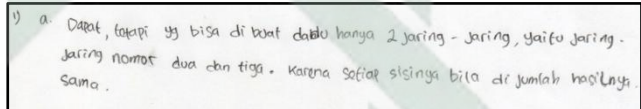 1) a. Dapat, tetapi yg bisa di buat dadu hanya 2 jaring - jaring, yaitu jaring -
jaring nomor dua dan tiga. Karena setiap sisinya bila di jumlah hasilnya
sama.